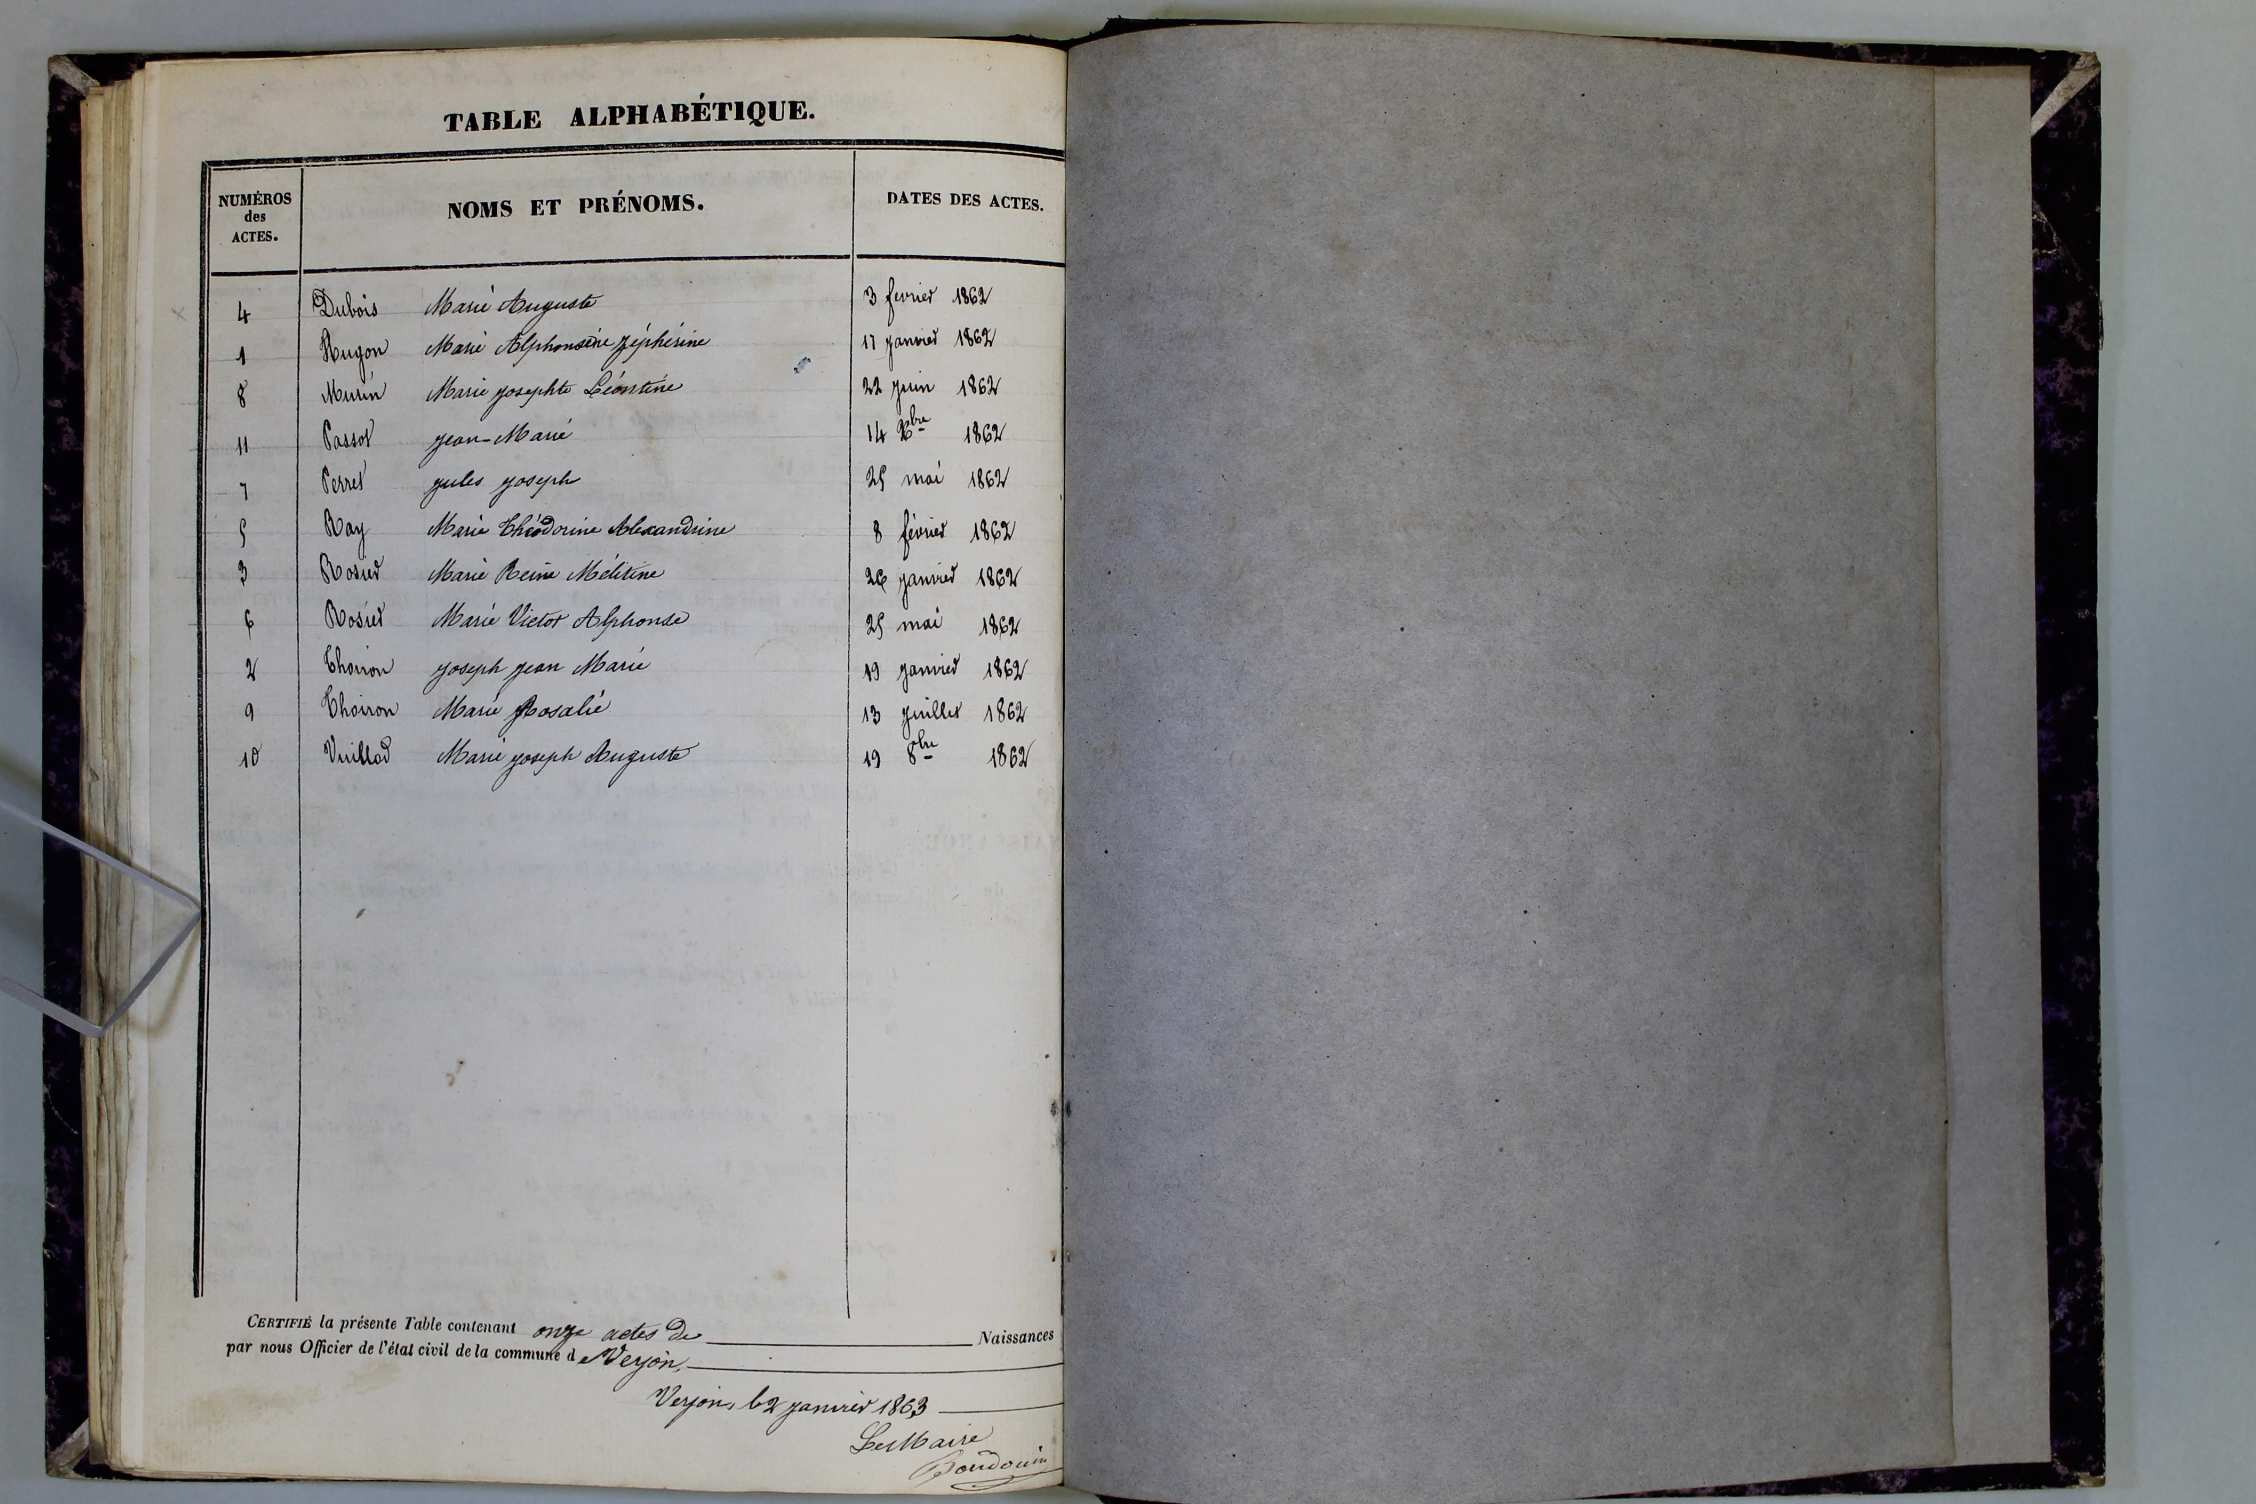 TABLE ALPHABÉTIQUE.
NUMÉROS des ACTES. NOMS ET PRÉNOMS. DATES DES ACTES.
4 Dubois Marie Auguste 3 fevrier 1862
1 Hugon Marie Alphonsine Zéphérine 17 janvier 1862
8 Marie Josephte Léontine 22 juin 1862
11 Passot Jean-Marie 14 Xbre 1862
7 Perret Jules Joseph 25 mai 1862
5 Ray Marie Théodorine Alexandrine 8 février 1862
3 Rosier Marie Reine Mélitine 26 janvier 1862
6 Rosier Marie Victor Alphonse 25 mai 1862
2 Thoiron Joseph Jean Marie 19 janvier 1862
9 Thoiron Marie Rosalie 13 juillet 1862
10 Vuillod Marie Joseph Auguste 19 8bre 1862
CERTIFIÉ la présente Table contenant onze actes de Naissances
par nous Officier de l'état civil de la commune de Verjon.
Verjon, le 2 janvier 1863
Le Maire